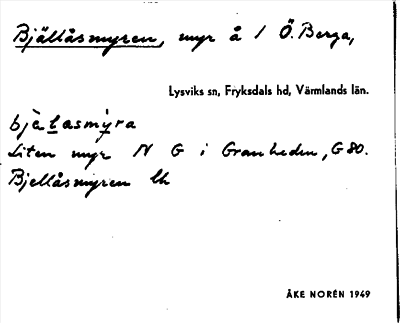 Bjällåsmyren, myr å 1 Ö. Berga,
Lysviks sn, Fryksdals hd, Värmlands län.
bjälasmy̌ra
Liten myr N G i Granheden, G80.
Bjellåsmyren lk
ÅKE NORÉN 1949